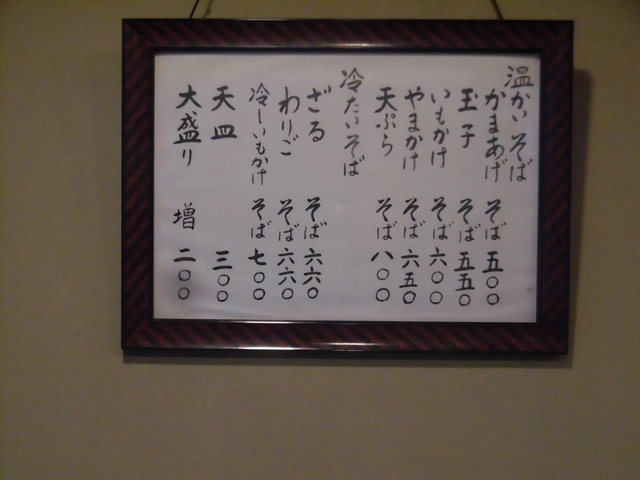 温かいそば
かまあげそば五〇〇
玉子そば五五〇
いもかけそば六〇〇
やまかけそば六五〇
天ぷらそば八〇〇
冷たいそば
ざるそば六六〇
わりごそば六六〇
冷しいもかけそば七〇〇
天皿三〇〇
大盛り増二〇〇